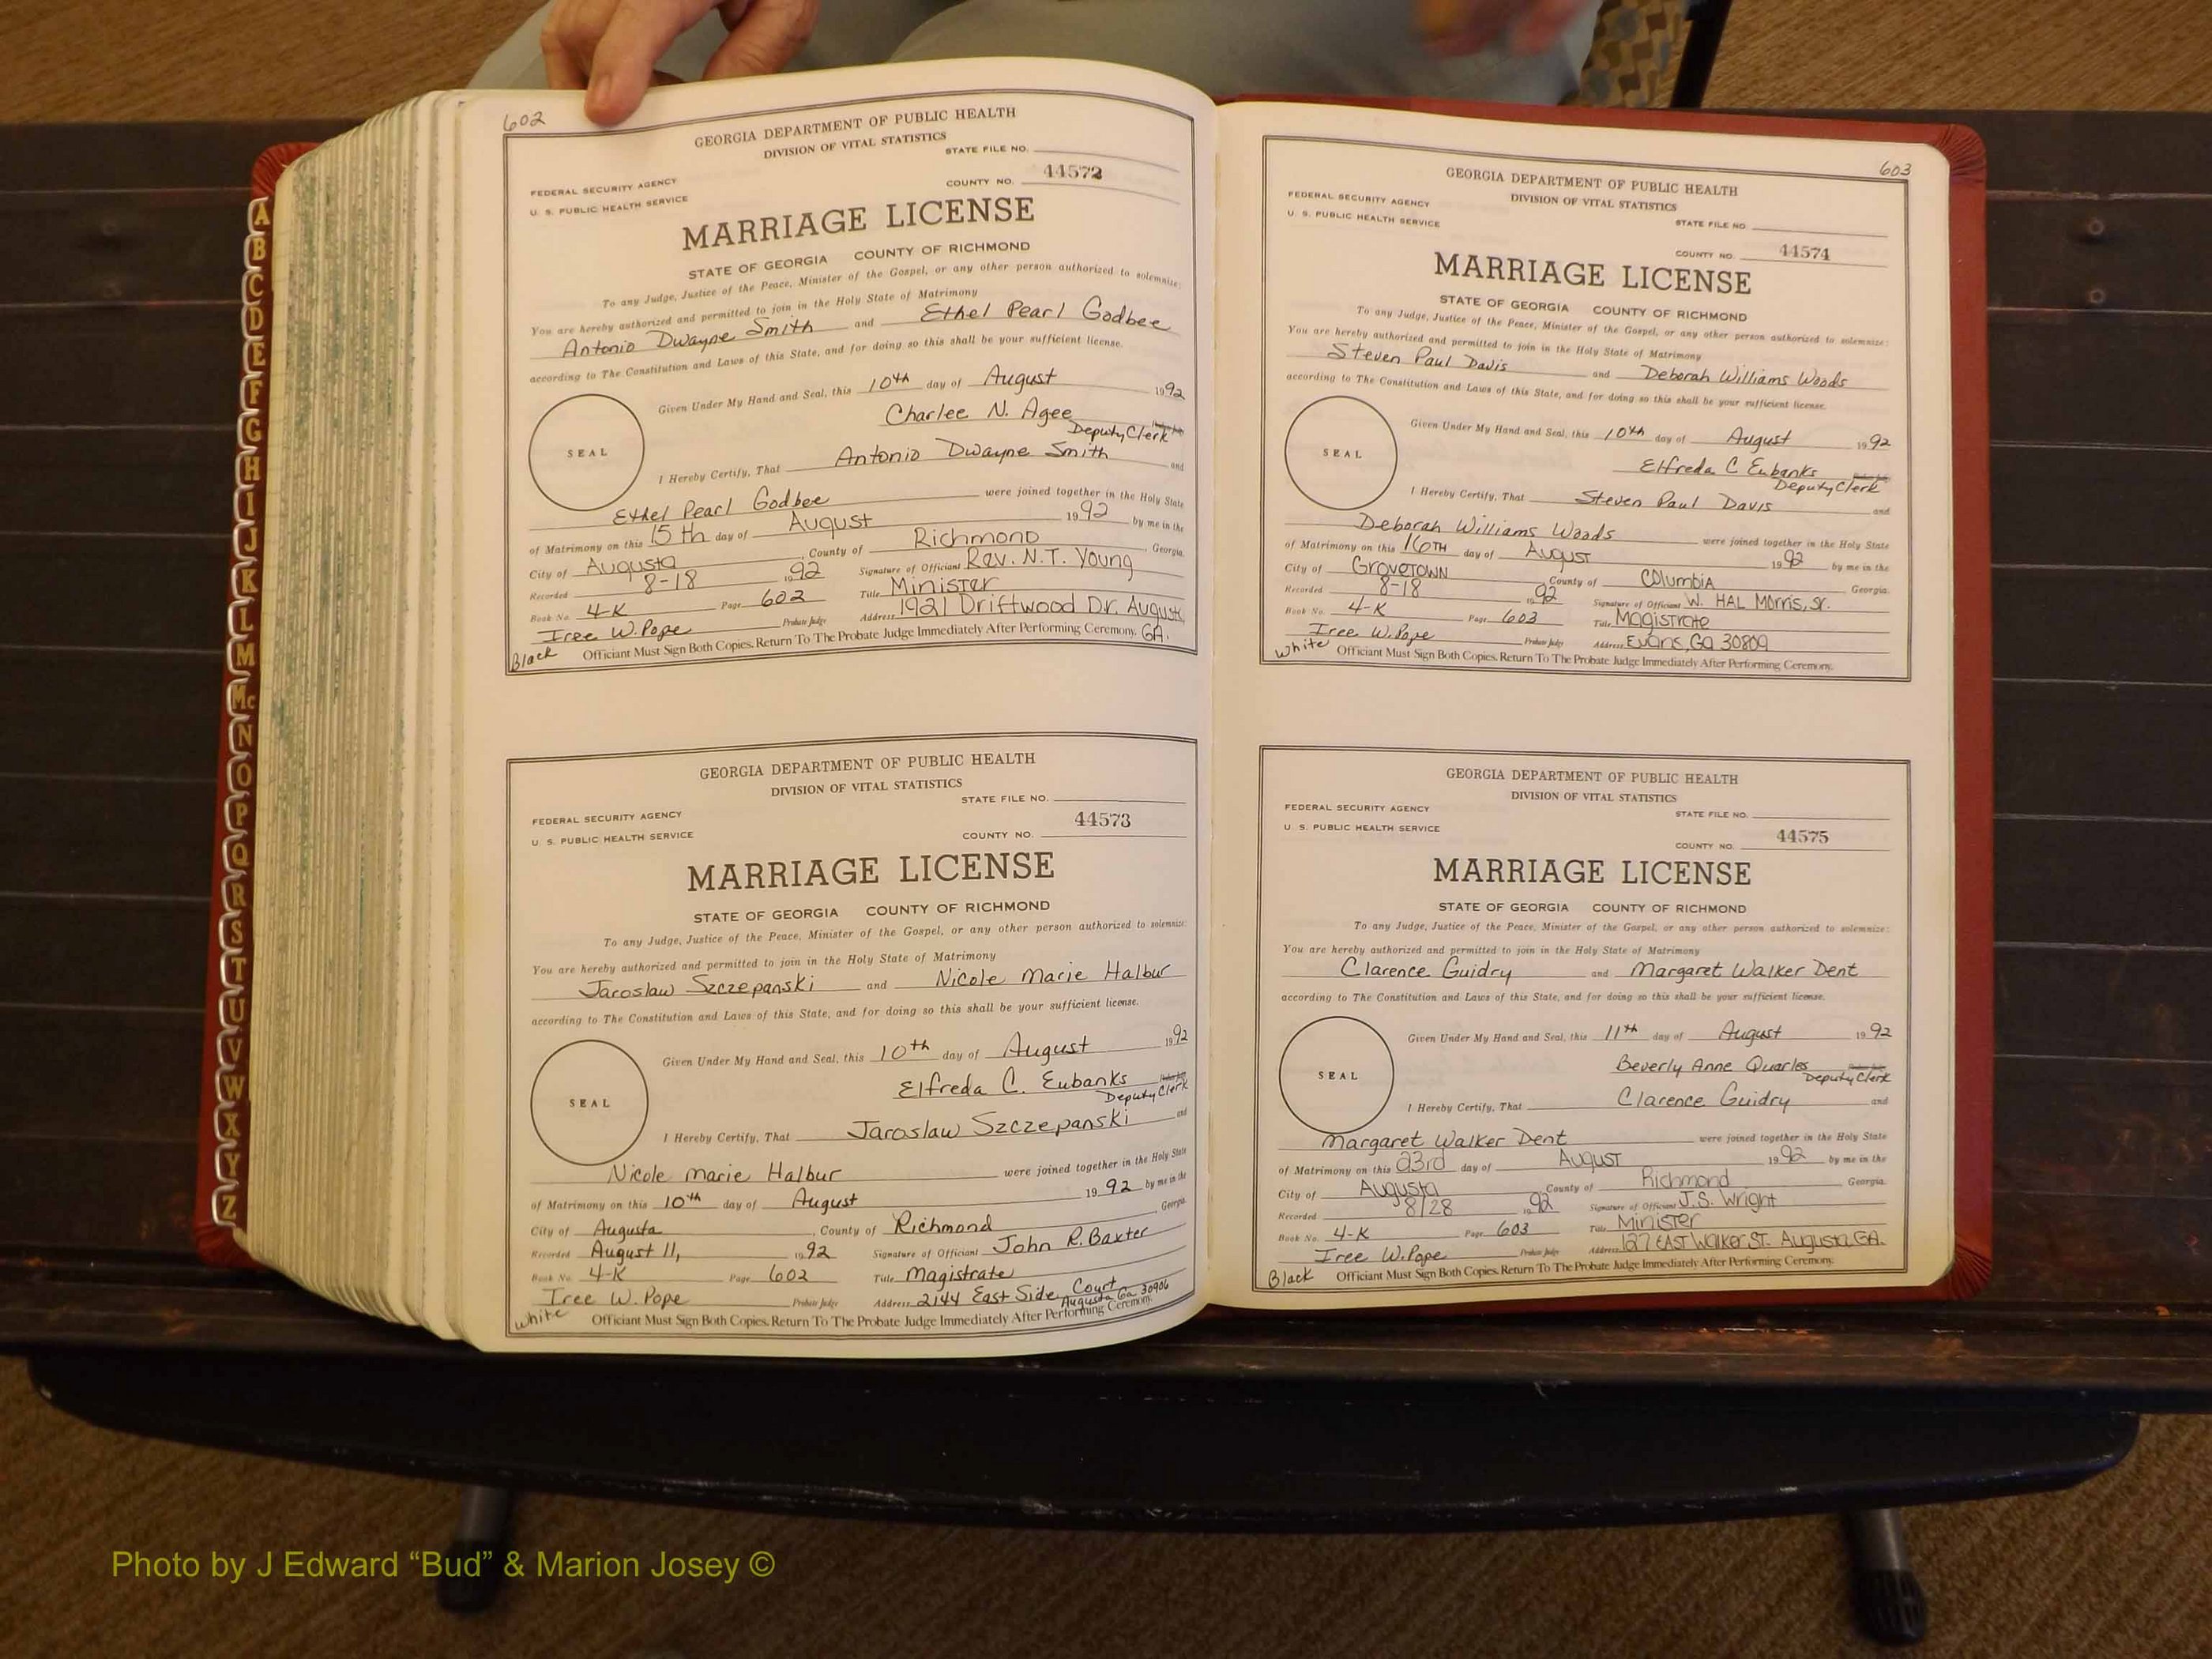 A
B
C
D
E
F
G
H
I
J
K
L
M
Mc
N
O
P
Q
R
S
T
U
V
W
X
Y
Z
602
GEORGIA DEPARTMENT OF PUBLIC HEALTH
DIVISION OF VITAL STATISTICS
STATE FILE NO.
FEDERAL SECURITY AGENCY
U. S. PUBLIC HEALTH SERVICE
COUNTY NO. 44572
MARRIAGE LICENSE
STATE OF GEORGIA COUNTY OF RICHMOND
To any Judge, Justice of the Peace, Minister of the Gospel, or any other person authorized to solemnize:
You are hereby authorized and permitted to join in the Holy State of Matrimony
Antonio Dwayne Smith and Ethel Pearl Godbee
according to The Constitution and Laws of this State, and for doing so this shall be your sufficient license.
Given Under My Hand and Seal, this 10th day of August 1992
Charlee N. Agee
Deputy Clerk
SEAL
I Hereby Certify, That Antonio Dwayne Smith and
Ethel Pearl Godbee were joined together in the Holy State
of Matrimony on this 15th day of August 1992 by me in the
City of Augusta, County of Richmond, Georgia.
Recorded 8-18 1992 Signature of Officiant Rev. N.T. Young
Book No. 4-K Page 602 Title Minister
Iree W. Pope Probate Judge Address 1921 Driftwood Dr. Augusta,
Black Officiant Must Sign Both Copies. Return To The Probate Judge Immediately After Performing Ceremony. GA.
GEORGIA DEPARTMENT OF PUBLIC HEALTH
DIVISION OF VITAL STATISTICS
STATE FILE NO.
FEDERAL SECURITY AGENCY
U. S. PUBLIC HEALTH SERVICE
COUNTY NO. 44573
MARRIAGE LICENSE
STATE OF GEORGIA COUNTY OF RICHMOND
To any Judge, Justice of the Peace, Minister of the Gospel, or any other person authorized to solemnize:
You are hereby authorized and permitted to join in the Holy State of Matrimony
Jaroslaw Szczepanski and Nicole Marie Halbur
according to The Constitution and Laws of this State, and for doing so this shall be your sufficient license.
Given Under My Hand and Seal, this 10th day of August 1992
Elfreda C. Eubanks
Deputy Clerk
SEAL
I Hereby Certify, That Jaroslaw Szczepanski and
Nicole Marie Halbur were joined together in the Holy State
of Matrimony on this 10th day of August 1992 by me in the
City of Augusta, County of Richmond, Georgia.
Recorded August 11, 1992 Signature of Officiant John R. Baxter
Book No. 4-K Page 602 Title Magistrate
Iree W. Pope Probate Judge Address 2144 East Side Court
Augusta Ga 30906
White Officiant Must Sign Both Copies. Return To The Probate Judge Immediately After Performing Ceremony.
603
GEORGIA DEPARTMENT OF PUBLIC HEALTH
DIVISION OF VITAL STATISTICS
FEDERAL SECURITY AGENCY
U. S. PUBLIC HEALTH SERVICE
STATE FILE NO.
COUNTY NO. 44574
MARRIAGE LICENSE
STATE OF GEORGIA COUNTY OF RICHMOND
To any Judge, Justice of the Peace, Minister of the Gospel, or any other person authorized to solemnize:
You are hereby authorized and permitted to join in the Holy State of Matrimony
Steven Paul Davis and Deborah Williams Woods
according to The Constitution and Laws of this State, and for doing so this shall be your sufficient license.
Given Under My Hand and Seal, this 10th day of August 1992
Elfreda C Eubanks
Deputy Clerk
SEAL
I Hereby Certify, That Steven Paul Davis and
Deborah Williams Woods were joined together in the Holy State
of Matrimony on this 16TH day of August 1992 by me in the
City of Grovetown County of Columbia Georgia.
Recorded 8-18 1992 Signature of Officiant W. HAL Morris, Sr.
Book No. 4-K Page 603 Title Magistrate
Iree W. Pope Probate Judge Address Evans, Ga 30809
White Officiant Must Sign Both Copies. Return To The Probate Judge Immediately After Performing Ceremony.
GEORGIA DEPARTMENT OF PUBLIC HEALTH
DIVISION OF VITAL STATISTICS
FEDERAL SECURITY AGENCY
U. S. PUBLIC HEALTH SERVICE
STATE FILE NO.
COUNTY NO. 44575
MARRIAGE LICENSE
STATE OF GEORGIA COUNTY OF RICHMOND
To any Judge, Justice of the Peace, Minister of the Gospel, or any other person authorized to solemnize:
You are hereby authorized and permitted to join in the Holy State of Matrimony
Clarence Guidry and Margaret Walker Dent
according to The Constitution and Laws of this State, and for doing so this shall be your sufficient license.
Given Under My Hand and Seal, this 11th day of August 1992
Beverly Anne Quarles
Deputy Clerk
SEAL
I Hereby Certify, That Clarence Guidry and
Margaret Walker Dent were joined together in the Holy State
of Matrimony on this 23rd day of August 1992 by me in the
City of Augusta County of Richmond Georgia.
Recorded 8/28 1992 Signature of Officiant J.S. Wright
Book No. 4-K Page 603 Title Minister
Iree W. Pope Probate Judge Address 127 EAST Walker ST. Augusta, GA.
Black Officiant Must Sign Both Copies. Return To The Probate Judge Immediately After Performing Ceremony.
Photo by J Edward “Bud” & Marion Josey ©